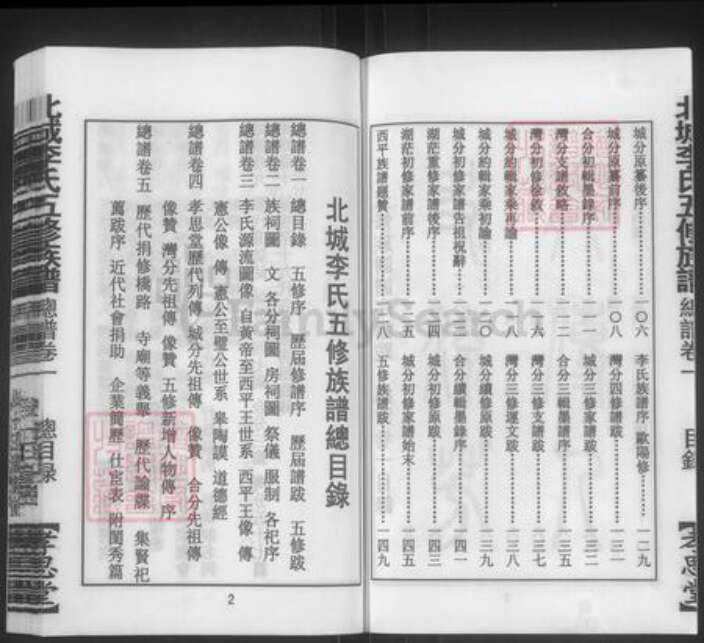 城分原纂後序 一〇六
城分原纂前序 一〇八
合分初輯墨錄序 一一一
灣分支譜敘略 一一二
灣分初修徐敘 一一六
城分約輯家乘再論 一一八
城分約輯家乘初論 一二〇
城分初修家譜告祖祝辭 一二一
湖茫重修家譜後序 一二四
湖茫初修家譜前序 一二五
西平族譜題贊 一二八
李氏族譜序 歐陽修 一二九
灣分四修譜跋 一三一
城分三修家譜跋 一三二
合分三輯墨譜序 一三五
灣分三修支譜跋 一三七
灣分三修運文跋 一三八
城分續修原跋 一三九
合分續輯墨錄序 一四一
城分初修原跋 一四三
城分初修家譜始末 一四五
五修族譜跋 一四九
北城李氏五修族譜
總譜卷一
總目錄
【孝思堂】
北城李氏五修族譜總目錄
總譜卷一 總目錄 五修序 歷屆修譜序 歷屆譜跋 五修跋
總譜卷二 族祠圖 文 各分祠圖 房祠圖 祭儀 服制 各祀序
總譜卷三 李氏源流圖像 自黃帝至西平王世系 西平王像 傳
憲公像 傳 憲公至璧公世系 皋陶謨 道德經
總譜卷四 孝思堂歷代列傳 城分先祖傳 像贊 合分先祖傳
像贊 灣分先祖傳 像贊 五修新增人物傳 序
總譜卷五 歷代捐修橋路 寺廟等義舉 歷代論諜 集賢祀
萬跋序 近代社會捐助 企業簡歷 仕宦表 附閨秀篇
2
北城李氏五修族譜
總譜卷一
總目錄
【孝思堂】
FamilySearch